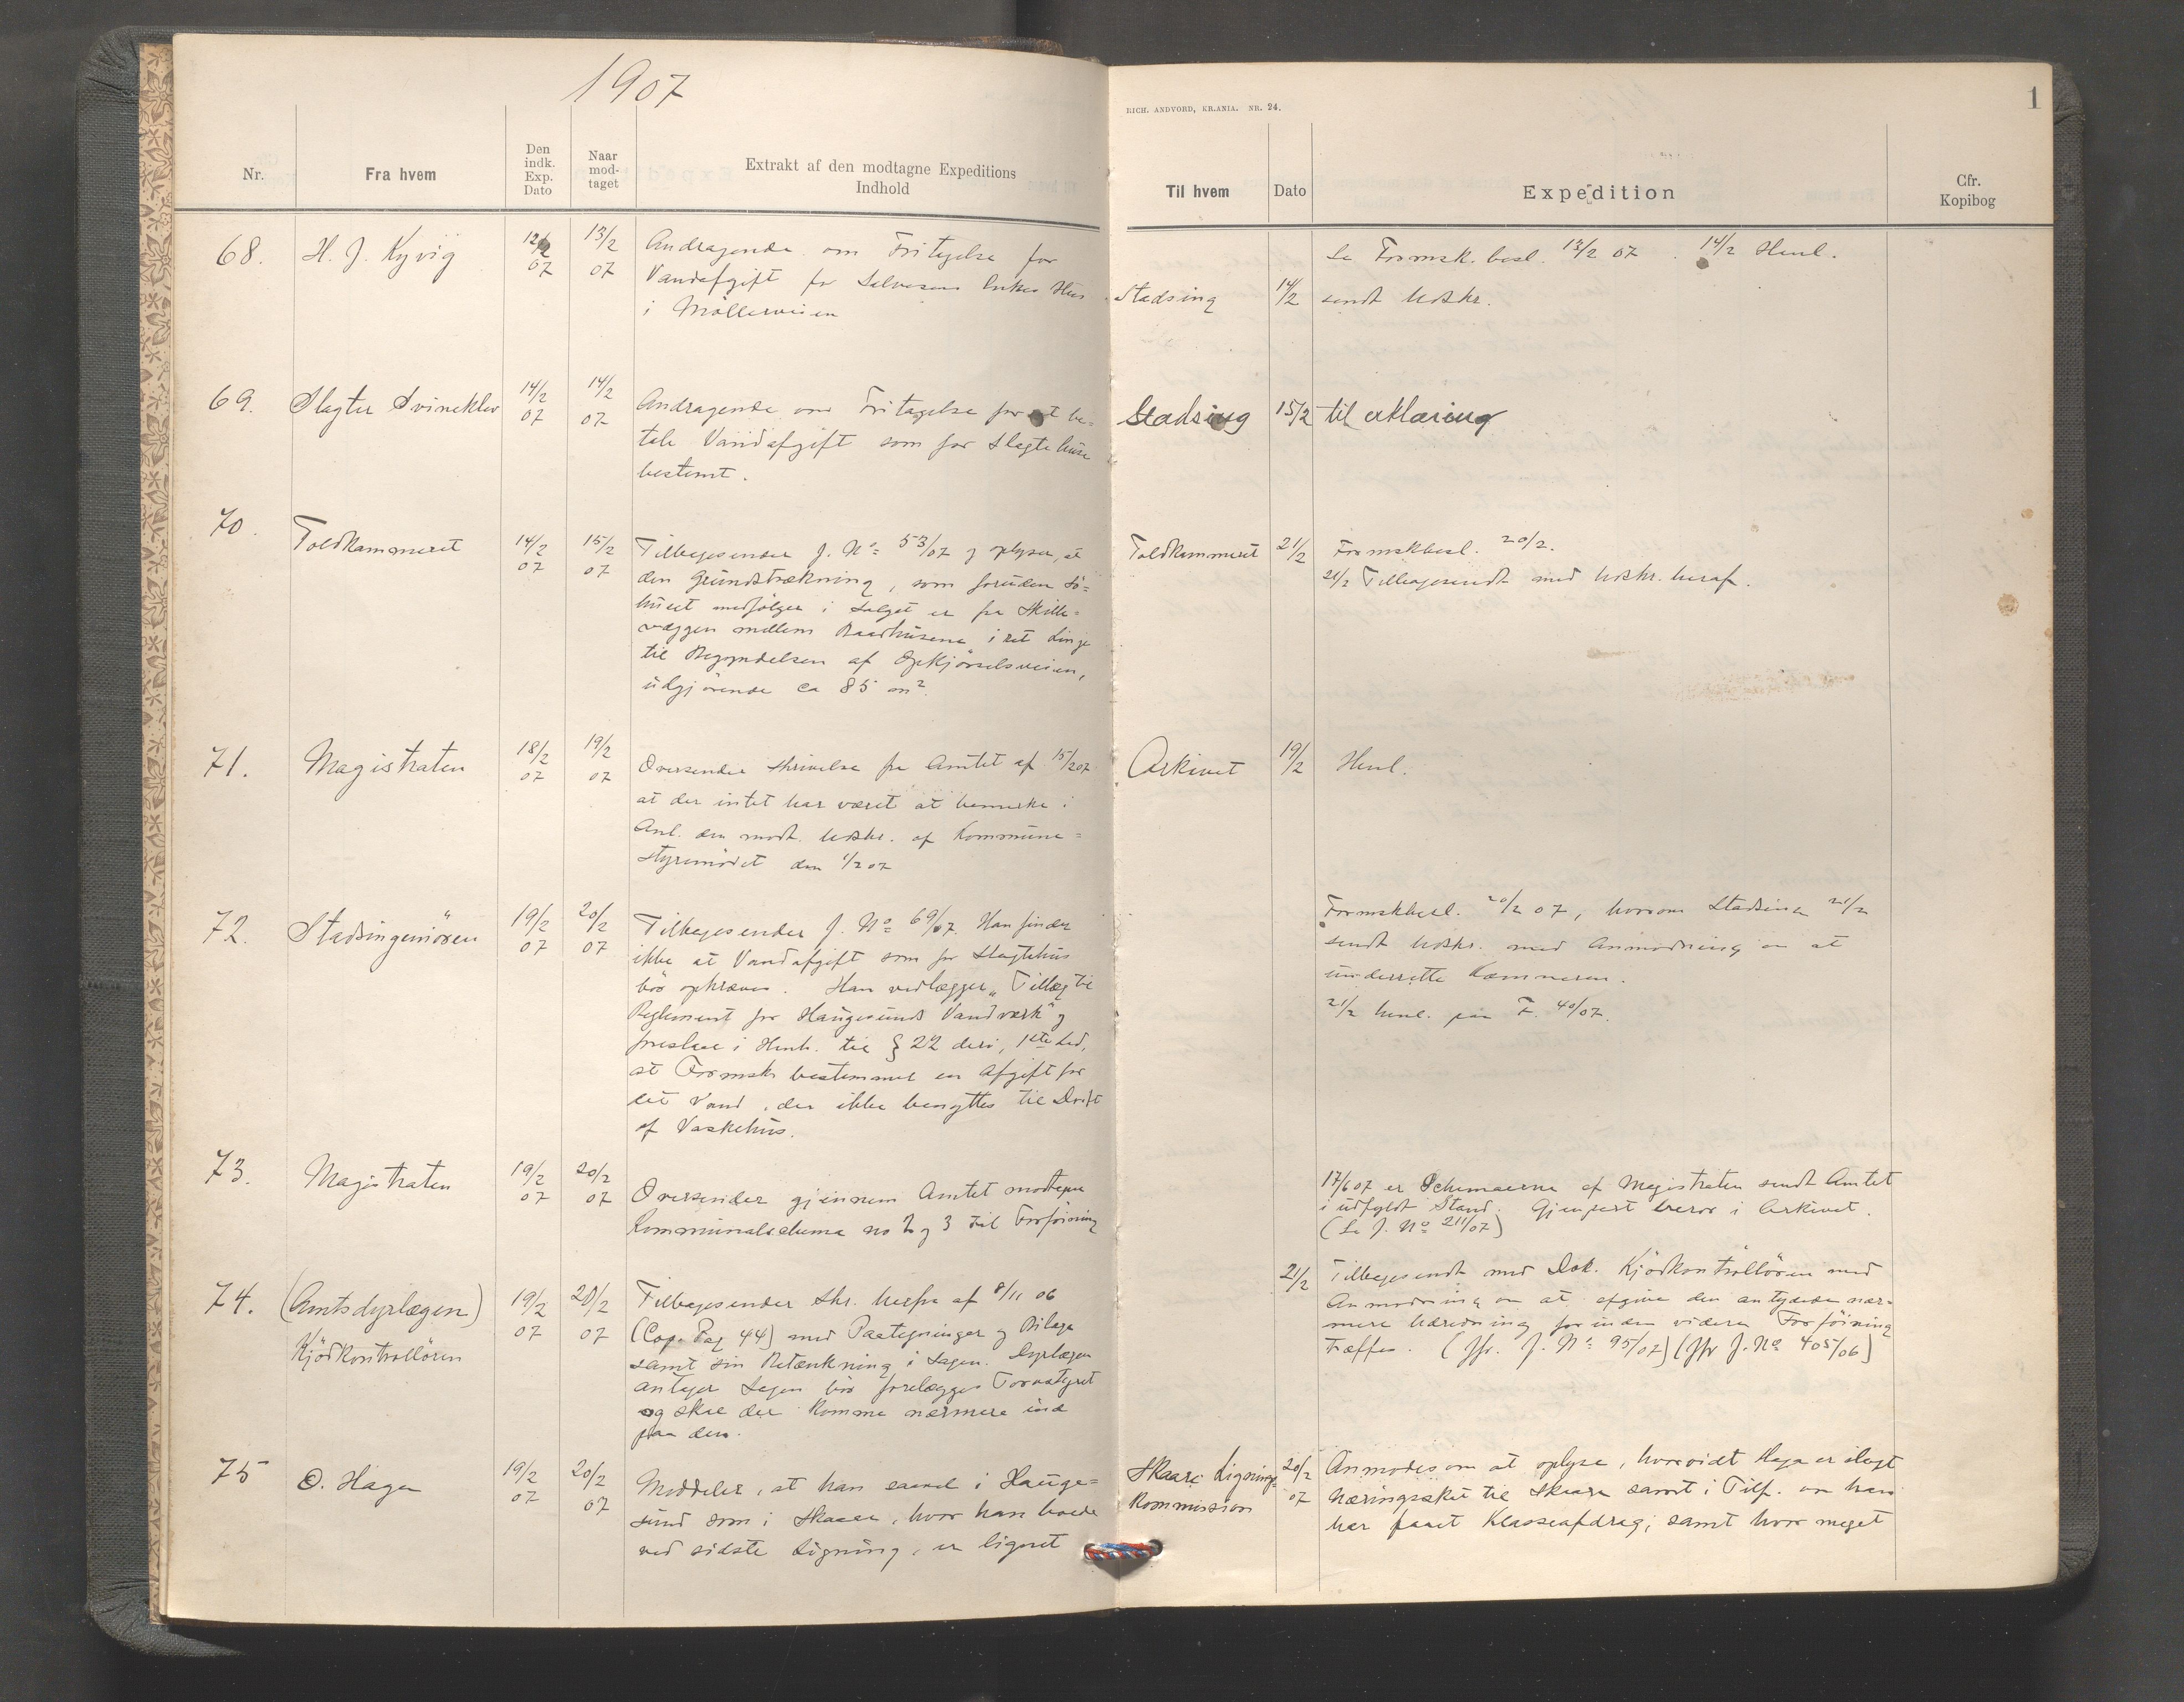 1907
Nr.
Fra hvem
Den
indk.
Exp.
Dato
Naar
mod-
taget
Extrakt af den modtagne Expeditions
Indhold
68.
H. J. Kyvig
12/2
07
13/2
07
Andragende om Fritagelse for
Vandafgift for Salvesens Enkes Hus
i Möllerveien
69.
Slagter Svineklev
14/2
07
14/2
07
Andragende om Fritagelse for at be-
tale Vandafgift som for Slagtehuse
bestemt.
70.
Toldkammeret
14/2
07
15/2
07
Tilbagesender J. No 53/07 og oplyser, at
den Grundstrækning, som foruden Sö-
huset medfölger i Salget er fra Skille-
væggen mellem Baadhusene i ret Linje
til Begyndelsen af Opkjörselsveien,
udgjörende ca 85 m².
71.
Magistraten
18/2
07
19/2
07
Oversender Skrivelse fra Amtet af 15/2 07
at der intet har været at bemerke i
Anl. den modt. Udskr. af Kommune-
styremödet den 1/2 07
72.
Stadsingeniören
19/2
07
20/2
07
Tilbagesender J. No 69/07. Han finder
ikke at Vandafgift som for Slagtehus
bör opkræves. Han vedlægger „Tillæg til
Reglement for Haugesunds Vandværk" og
foreslaar i Henh. til § 22 deri, 1ste Led,
at Formsk. bestemmer en Afgift for
det Vand, der ikke benyttes til Drift
af Vaskehus.
73.
Magistraten
19/2
07
20/2
07
Oversender gjennem Amtet modtagne
Kommunalschema no 2 og 3 til Forföining
74.
(Amtsdyrlægen)
Kjödkontrollören
19/2
07
20/2
07
Tilbagesender Skr. herfra af 8/11 06
(Cop. Pag 44) med Paategninger og Bilage
samt sin Betænkning i Sagen. Dyrlægen
antager Sagen bör forelægges Formstyret
og skal der komme nærmere ind
paa den.
75
O. Hagen
19/2
07
20/2
07
Meddeler, at han saavel i Hauge-
sund som i Skaare, hvor han boede
ved sidste Ligning, er lignet
RICH. ANDVORD, KR.ANIA. NR. 24.
1
Til hvem
Dato
Expedition
Cfr.
Kopibog
Se Formsk. besl. 13/2 07. 14/2 Henl.
Stadsing
14/2
sendt Udskr.
Stadsing
15/2
til erklæring
Toldkammeret
21/2
Formskbesl. 20/2.
21/2 Tilbagesendt med Udskr. heraf.
Arkivet
19/2
Henl.
Formskbesl. 20/2 07, hvorom Stadsing 21/2
sendt Udskr. med Anmodning om at
underrette Kæmneren.
21/2 henl. paa F. 40/07.
17/6 07 er Schemaerne af Magistraten sendt Amtet
i udfyldt Stand. Gjenpart beror i Arkivet.
(Se J. No 211/07)
21/2
Tilbagesendt med Dok. Kjödkontrollören med
Anmodning om at afgive den antydede nær-
mere Udredning forinden videre Forföining
træffes. (Jfr. J. No 95/07) (Jfr J. No 405/06)
Skaare Lignings-
kommission
20/2
07
Anmodes om at oplyse, hvorvidt Hagen er ilagt
Næringsskat til Skaare samt i Tilf. om han
har faaet Klasseafdrag, samt hvor meget